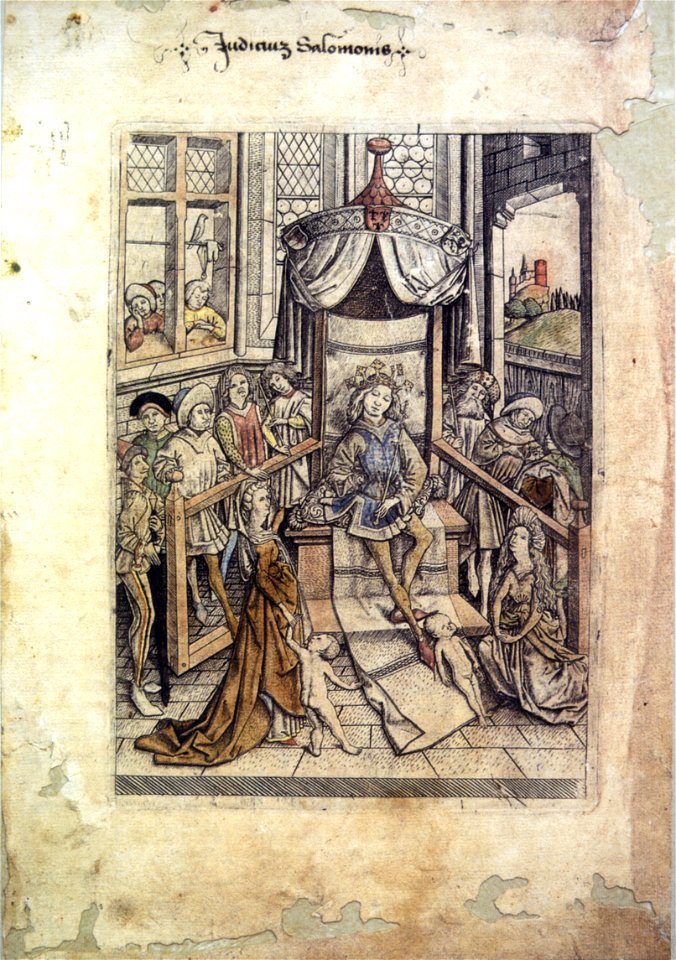 Judiciuʒ Salomonis